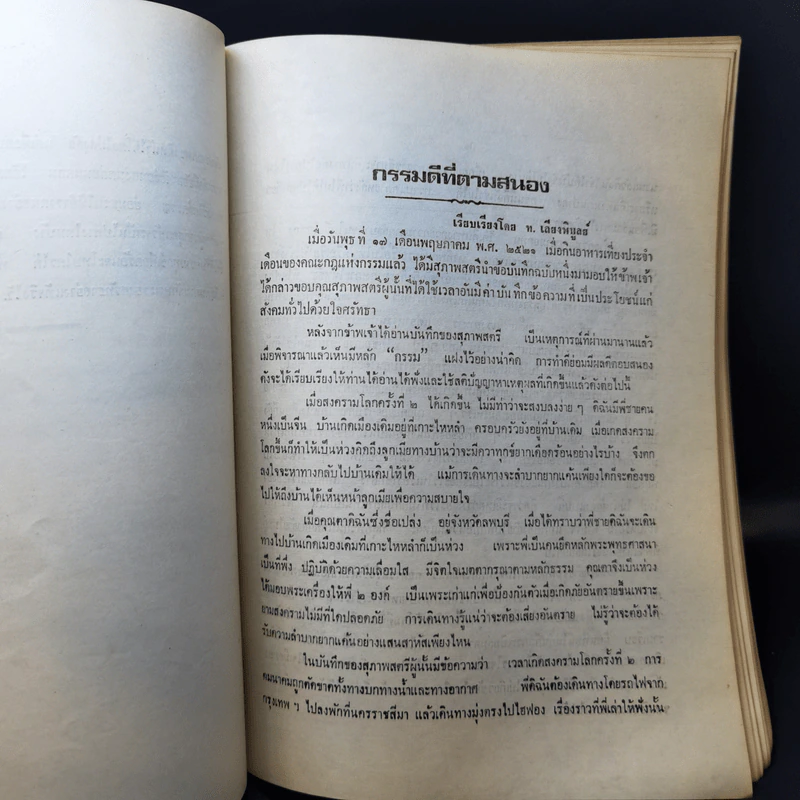 กรรมดีที่ตามสนอง
เรียบเรียงโดย ท. เลียงพิบูลย์
เมื่อวันพุธ ที่ ๑๗ เดือนพฤษภาคม พ.ศ. ๒๕๒๑ เมื่อกินอาหารเที่ยงประจำ
เดือนของคณะกฎแห่งกรรมแล้ว ได้มีสุภาพสตรีนำข้อบันทึกฉบับหนึ่งมามอบให้ข้าพเจ้า
ได้กล่าวขอบคุณสุภาพสตรีผู้นั้นที่ได้ใช้เวลาอันมีค่าบันทึกข้อความที่เป็นประโยชน์แก่
สังคมทั่วไปด้วยใจศรัทธา
หลังจากข้าพเจ้าได้อ่านบันทึกของสุภาพสตรี เป็นเหตุการณ์ที่ผ่านมานานแล้ว
เมื่อพิจารณาแล้วเห็นมีหลัก “กรรม” แฝงไว้อย่างน่าคิด การทำดีย่อมมีผลดีตอบสนอง
ดังจะได้เรียบเรียงให้ท่านได้อ่านได้ฟังและใช้สติปัญญาหาเหตุผลที่เกิดขึ้นแล้วดังต่อไปนี้
เมื่อสงครามโลกครั้งที่ ๒ ได้เกิดขึ้น ไม่มีทำว่าจะสงบลงง่าย ๆ ดิฉันมีพี่ชายคน
หนึ่งเป็นจีน บ้านเกิดเมืองเดิมอยู่ที่เกาะไหหลำ ครอบครัวยังอยู่ที่บ้านเดิม เมื่อเกิดสงคราม
โลกขึ้นก็ทำให้เป็นห่วงคิดถึงลูกเมียทางบ้านว่าจะมีความทุกข์ยากเดือดร้อนอย่างไรบ้าง จึงตก
ลงใจจะหาทางกลับไปบ้านเดิมให้ได้ แม้การเดินทางจะลำบากยากแค้นเพียงใดก็จะต้องขอ
ไปให้ถึงบ้านได้เห็นหน้าลูกเมียเพื่อความสบายใจ
เมื่อคุณตาดิฉันซึ่งชื่อเปล่ง อยู่จังหวัดลพบุรี เมื่อได้ทราบว่าพี่ชายดิฉันจะเดิน
ทางไปบ้านเกิดเมืองเดิมที่เกาะไหหลำก็เป็นห่วง เพราะพี่เป็นคนยึดหลักพระพุทธศาสนา
เป็นที่พึ่ง ปฏิบัติด้วยความเลื่อมใส มีจิตใจเมตตากรุณาตามหลักธรรม คุณตาจึงเป็นห่วง
ได้มอบพระเครื่องให้พี่ ๒ องค์ เป็นพระเก่าแก่เพื่อป้องกันตัวเมื่อเกิดภัยอันตรายขึ้นเพราะ
ยามสงครามไม่มีที่ใดปลอดภัย การเดินทางรู้แน่ว่าจะต้องเสี่ยงอันตราย ไม่รู้ว่าจะต้องได้
รับความลำบากยากแค้นอย่างแสนสาหัสเพียงไหน
ในบันทึกของสุภาพสตรีผู้นั้นมีข้อความว่า เวลาเกิดสงครามโลกครั้งที่ ๒ การ
คมนาคมถูกตัดขาดทั้งทางบกทางน้ำและทางอากาศ พี่ดิฉันต้องเดินทางโดยรถไฟจาก
กรุงเทพ ฯ ไปลงพักที่นครราชสีมา แล้วเดินทางมุ่งตรงไปไฮฟอง เรื่องราวที่พี่เล่าให้ฟังนั้น